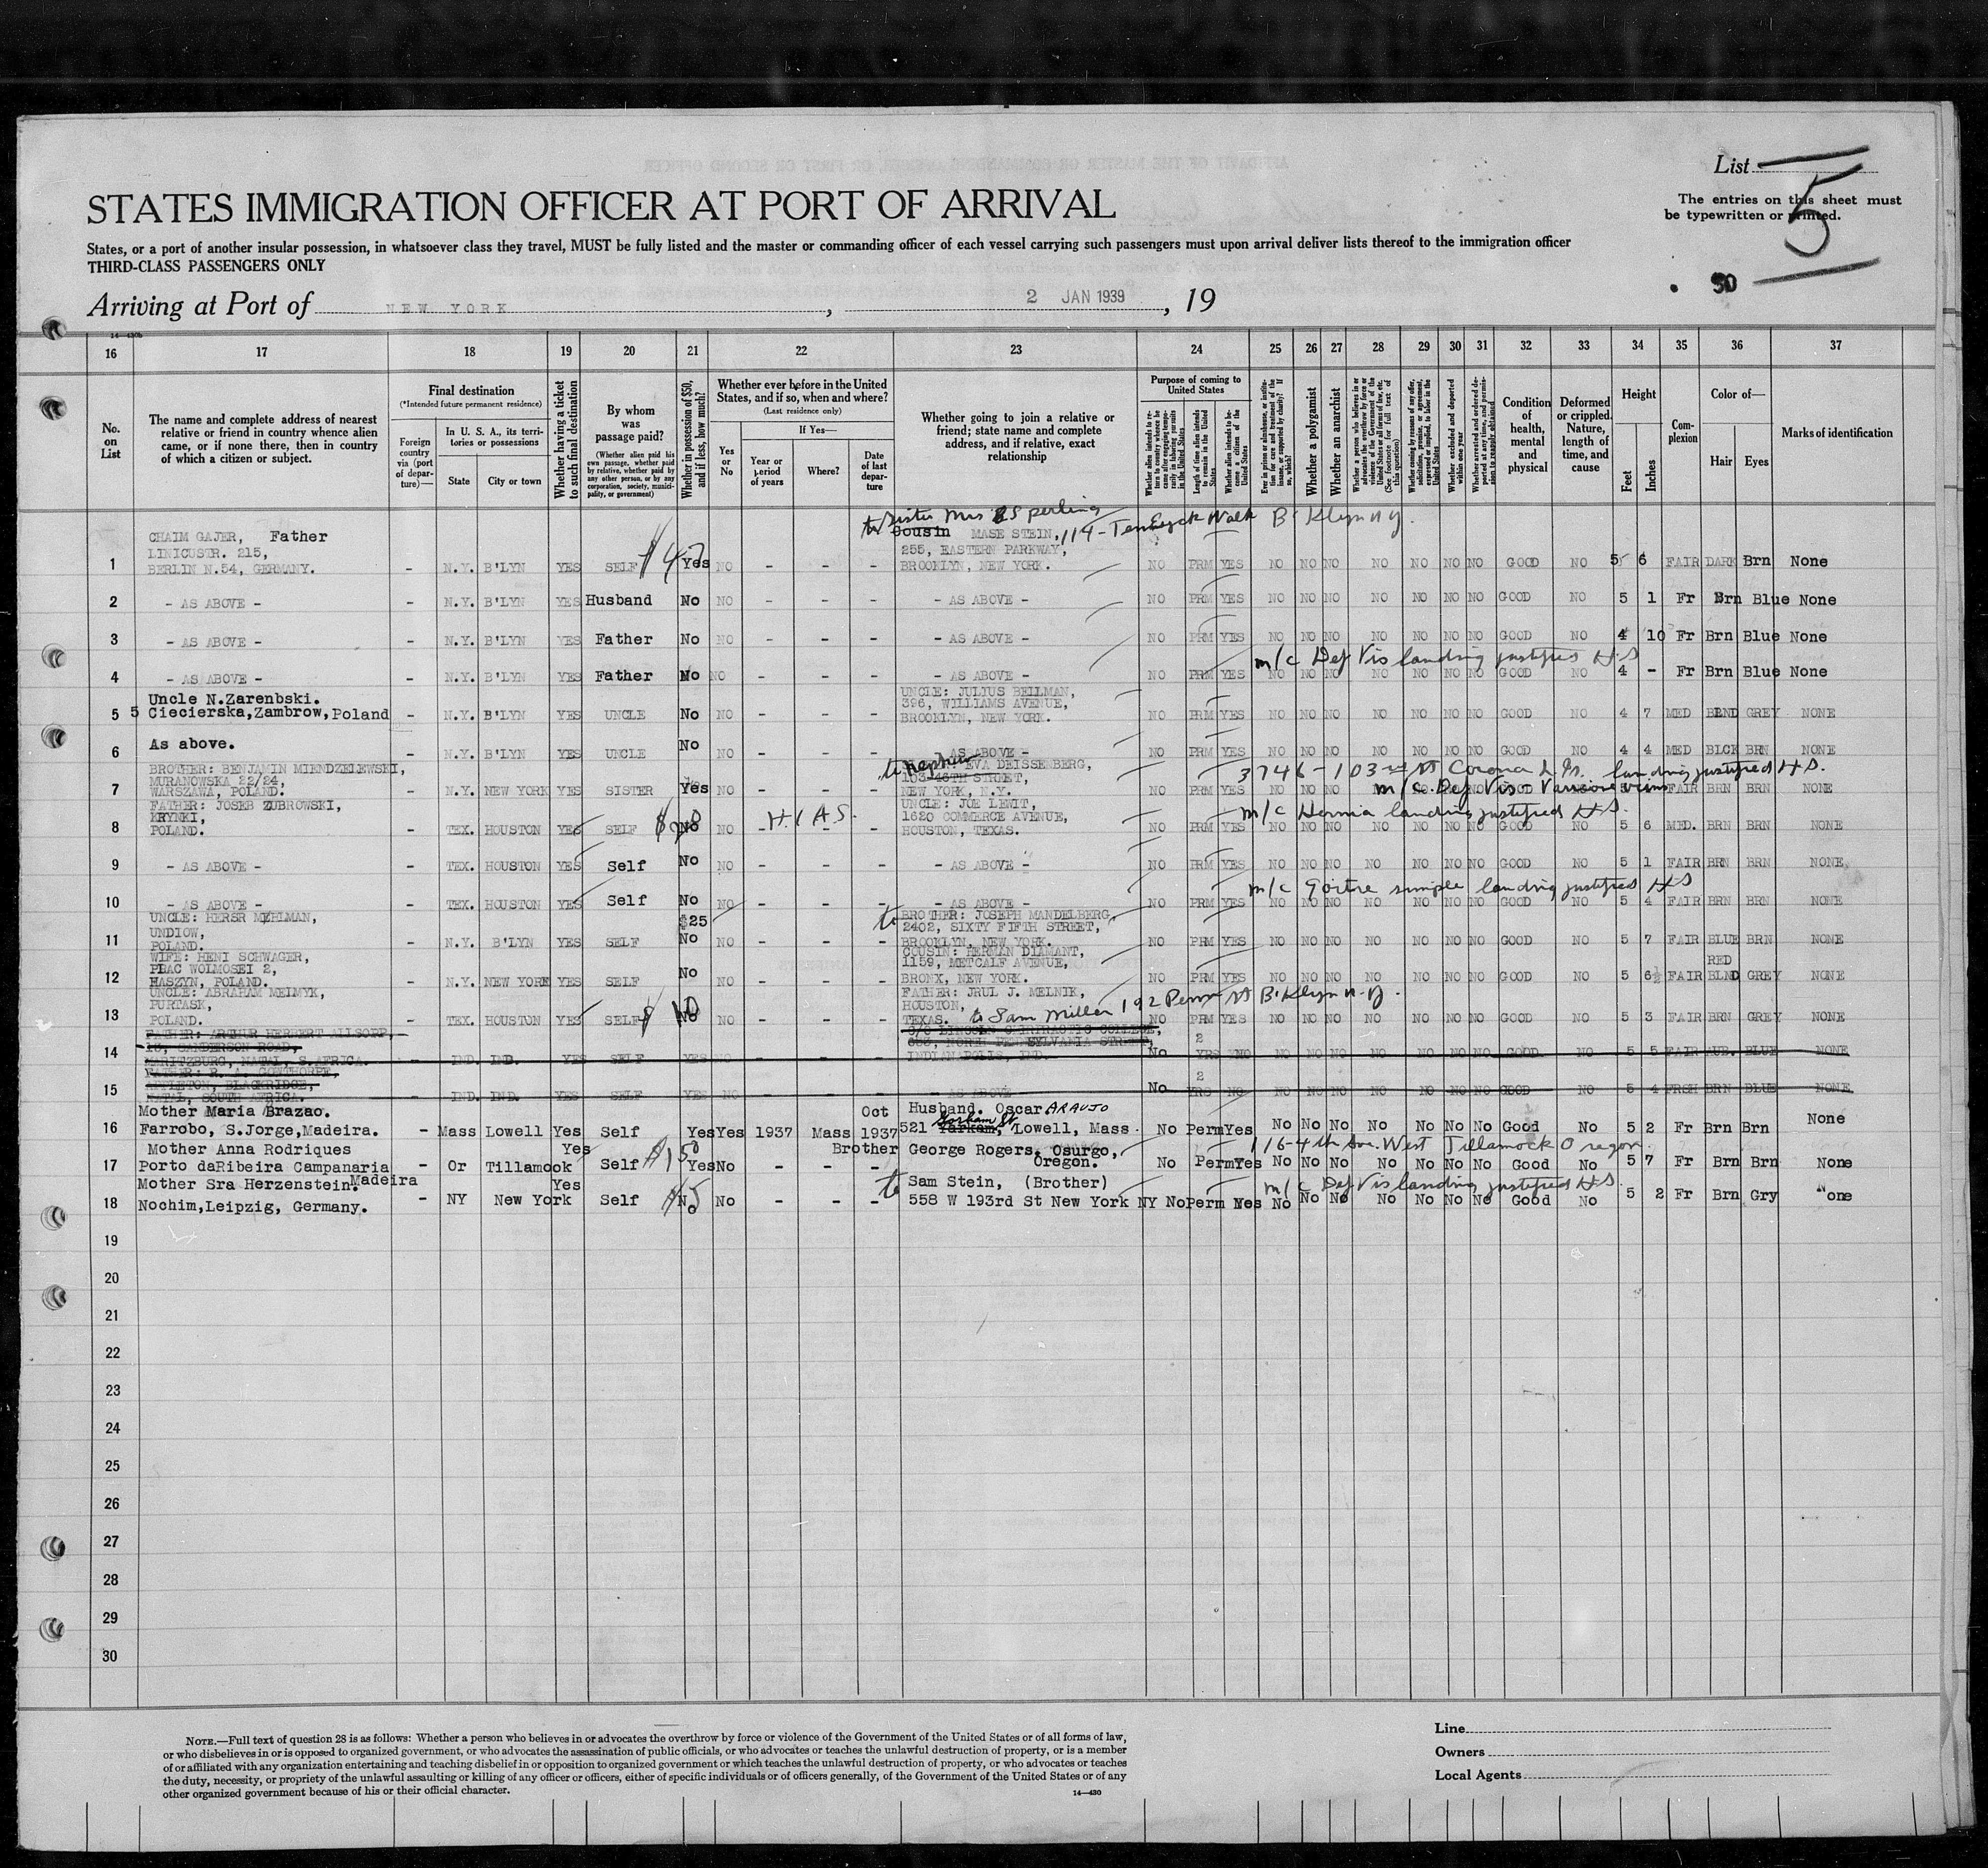 List
5
The entries on this sheet must
be typewritten or printed.
STATES IMMIGRATION OFFICER AT PORT OF ARRIVAL
States, or a port of another insular possession, in whatsoever class they travel, MUST be fully listed and the master or commanding officer of each vessel carrying such passengers must upon arrival deliver lists thereof to the immigration officer
THIRD-CLASS PASSENGERS ONLY
50
Arriving at Port of NEW YORK, 2 JAN 1939, 19
16 17 18 19 20 21 22 23 24 25 26 27 28 29 30 31 32 33 34 35 36 37
No. on List
The name and complete address of nearest relative or friend in country whence alien came, or if none there, then in country of which a citizen or subject.
Final destination
(*Intended future permanent residence)
Foreign country via (port of departure)—
In U. S. A., its territories or possessions
State
City or town
Whether having a ticket to such final destination
By whom was passage paid?
(Whether alien paid his own passage, whether paid by relative, whether paid by any other person, or by any corporation, society, municipality, or government)
Whether in possession of $50, and if less, how much?
Whether ever before in the United States, and if so, when and where?
(Last residence only)
Yes or No
If Yes—
Year or period of years
Where?
Date of last departure
Whether going to join a relative or friend; state name and complete address, and if relative, exact relationship
Purpose of coming to United States
Whether a polygamist
Whether an anarchist
Condition of health, mental and physical
Deformed or crippled. Nature, length of time, and cause
Height
Feet
Inches
Complexion
Color of—
Hair
Eyes
Marks of identification
to Sister Mrs Sperling
114 - Ten Eyck Walk B'klyn N.Y.
CHAIM GAJER, Father Cousin MASE STEIN,
LINICUSTR. 215, 255, EASTERN PARKWAY,
1 BERLIN N.54, GERMANY. - N.Y. B'LYN YES SELF $47 Yes NO - - - BROOKLYN, NEW YORK. NO PRM YES NO NO NO NO NO NO NO GOOD NO 5 6 FAIR DARK Brn None
2 - AS ABOVE - - N.Y. B'LYN YES Husband No NO - - - - AS ABOVE - NO PRM YES NO NO NO NO NO NO NO GOOD NO 5 1 Fr Brn Blue None
3 - AS ABOVE - - N.Y. B'LYN YES Father No NO - - - - AS ABOVE - NO PRM YES NO NO NO NO NO NO NO GOOD NO 4 10 Fr Brn Blue None
m/c Def Vis landing justified H.S
4 - AS ABOVE - - N.Y. B'LYN YES Father No NO - - - - AS ABOVE - NO PRM YES NO NO NO NO NO NO NO GOOD NO 4 - Fr Brn Blue None
Uncle N.Zarenbski. UNCLE: JULIUS BELLMAN,
396, WILLIAMS AVENUE,
5 5 Ciecierska,Zambrow,Poland - N.Y. B'LYN YES UNCLE No NO - - - BROOKLYN, NEW YORK. NO PRM YES NO NO NO NO NO NO NO GOOD NO 4 7 MED BLND GREY NONE
6 As above. - N.Y. B'LYN YES UNCLE No NO - - - - AS ABOVE - NO PRM YES NO NO NO NO NO NO NO GOOD NO 4 4 MED BLCK BRN NONE
BROTHER: BENJAMIN MIENDZELEWSKI, to nephew EVA DEISSENBERG,
MURANOWSKA 22/24, 103-46TH STREET, 3746-103rd St Corona L.I. landing justified H.S.
7 WARSZAWA, POLAND. - N.Y. NEW YORK YES SISTER Yes NO - - - NEW YORK, N.Y. NO PRM YES NO NO NO m/c Def Vis - Varicose veins FAIR BRN BRN NONE
FATHER: JOSEB ZUBROWSKI, UNCLE: JOE LEWIT,
KRYNKI, H.I.A.S. 1620 COMMERCE AVENUE, m/c Hernia landing justified H.S.
8 POLAND. - TEX. HOUSTON YES SELF No NO - - - HOUSTON, TEXAS. NO PRM YES NO NO NO NO NO NO NO GOOD NO 5 6 MED. BRN BRN NONE
9 - AS ABOVE - - TEX. HOUSTON YES Self No NO - - - - AS ABOVE - NO PRM YES NO NO NO NO NO NO NO GOOD NO 5 1 FAIR BRN BRN NONE
m/c Goitre simple landing justified H.S
10 - AS ABOVE - - TEX. HOUSTON YES Self No NO - - - - AS ABOVE - NO PRM YES NO NO NO NO NO NO NO GOOD NO 5 4 FAIR BRN BRN NONE
UNCLE: HERSR MEHLMAN, $25 to BROTHER: JOSEPH MANDELBERG,
UNDIOW, 2402, SIXTY FIFTH STREET,
11 POLAND. - N.Y. B'LYN YES SELF No NO - - - BROOKLYN, NEW YORK. NO PRM YES NO NO NO NO NO NO NO GOOD NO 5 7 FAIR BLUE BRN NONE
WIFE: HENI SCHWAGER, COUSIN: HERMAN DIAMANT,
PLAC WOLMOSEI 2, 1159, METCALF AVENUE, RED
12 HASZYN, POLAND. - N.Y. NEW YORK YES SELF No NO - - - BRONX, NEW YORK. NO PRM YES NO NO NO NO NO NO NO GOOD NO 5 6½ FAIR BLND GREY NONE
UNCLE: ABRAHAM MELMYK, FATHER: JRUL J. MELNIK,
PURTASK, HOUSTON, to Sam Miller 192 Penn St B'klyn N.Y.
13 POLAND. - TEX. HOUSTON YES SELF $10 No NO - - - TEXAS. NO PRM YES NO NO NO NO NO NO NO GOOD NO 5 3 FAIR BRN GREY NONE
FATHER: ARTHUR HERBERT ALLSOPP, C/O LINCOLN CHIRPRACTIC COLLEGE,
13, SANDERSON ROAD, 633, NORTH PENNSYLVANIA STREET, 2
14 MARITZBURG, NATAL, S.AFRICA. IND. IND. YES SELF YES NO INDIANAPOLIS, IND. No YRS NO NO NO NO NO NO NO NO GOOD NO 5 5 FAIR AUB. BLUE NONE
FATHER: R. A. GOWTHORPE,
APPLETON, BLACKRIDGE, 2
15 NATAL, SOUTH AFRICA. IND. IND. YES SELF YES NO - AS ABOVE No YRS NO NO NO NO NO NO NO NO GOOD NO 5 4 FRSH BRN BLUE NONE
Mother Maria Brazao. Oct Husband. Oscar ARAUJO
16 Farrobo, S.Jorge,Madeira. - Mass Lowell Yes Self Yes Yes 1937 Mass 1937 521 Gorham St, Lowell, Mass. No Perm Yes No No No No No No No Good No 5 2 Fr Brn Brn None
Mother Anna Rodriques Yes $150 Brother George Rogers, Osurgo, 116-4th Ave. West Tillamook Oregon.
17 Porto daRibeira Campanaria Madeira - Or Tillamook Self Yes No - - - Oregon. No Perm Yes No No No No No No No Good No 5 7 Fr Brn Brn None
Mother Sra Herzenstein. Yes to Sam Stein, (Brother) m/c Def Vis landing justified H.S.
18 Nochim,Leipzig, Germany. - NY New York Self No No - - - 558 W 193rd St New York NY No Perm Yes No No No No No No No Good No 5 2 Fr Brn Gry None
19
20
21
22
23
24
25
26
27
28
29
30
NOTE.—Full text of question 28 is as follows: Whether a person who believes in or advocates the overthrow by force or violence of the Government of the United States or of all forms of law,
or who disbelieves in or is opposed to organized government, or who advocates the assassination of public officials, or who advocates or teaches the unlawful destruction of property, or is a member
of or affiliated with any organization entertaining and teaching disbelief in or opposition to organized government or which teaches the unlawful destruction of property, or who advocates or teaches
the duty, necessity, or propriety of the unlawful assaulting or killing of any officer or officers, either of specific individuals or of officers generally, of the Government of the United States or of any
other organized government because of his or their official character.
14—430
Line
Owners
Local Agents